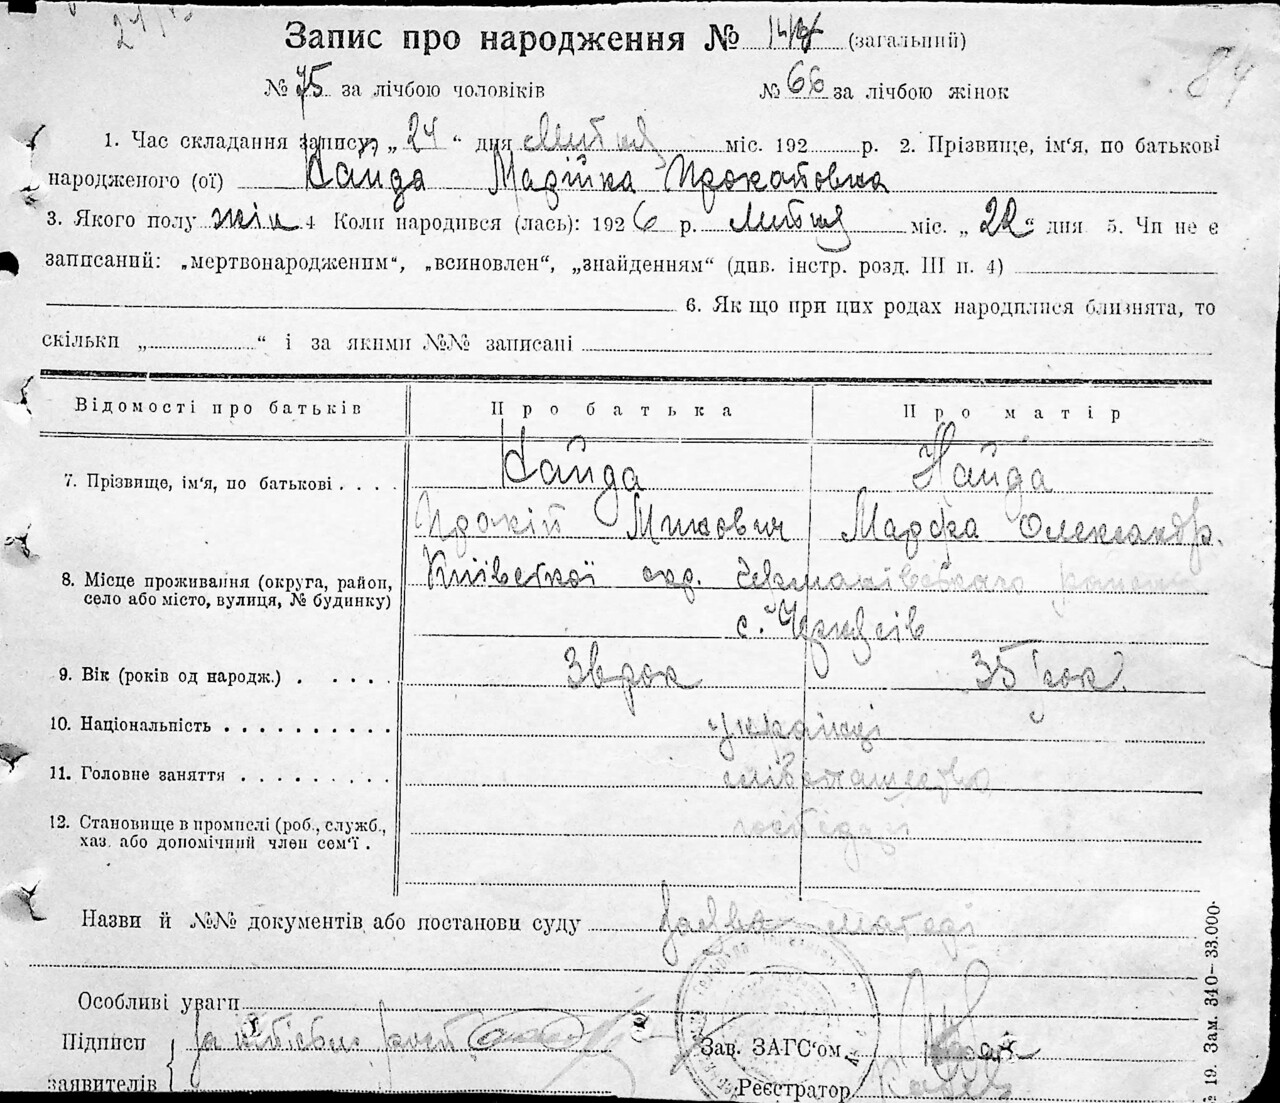 Запис про народження № (загальний)
84
№ 75 за лічбою чоловіків № 66 за лічбою жінок
1. Час складання запису „ 24 “ дня Лютця міс. 192 р. 2. Прізвище, ім'я, по батькові
народженого (ої) Найда Марійка Прокоповна
3. Якого полу жін 4 Коли народився (лась): 1926 р. Лютця міс. „ 22 “ дня 5. Чи не є
записаний: „мертвонародженим“, „всиновлен“, „знайденням“ (див. інстр. розд. III п. 4)
6. Як що при цих родах народилися близнята, то
скільки „ “ і за якими №№ записані
Відомості про батьків Про батька Про матір
7. Прізвище, ім'я, по батькові . . . . Найда Найда
Прокіп Мусович Марфа Олександр.
8. Місце проживання (округа, район, село або місто, вулиця, № будинку) Київської окр.
с.
9. Вік (років од народж.) . . . . . рок 35 рок.
10. Національність . . . . . . . . . . українці
11. Головне заняття . . . . . . . . .
12. Становище в промислі (роб., служб., хаз. або допомічний член сем'ї .
Назви й №№ документів або постанови суду заява матері
Особливі уваги
Підписи
заявителів
Зав. ЗАГС'ом
Реєстратор
№ 19. Зам. 340–33.000.